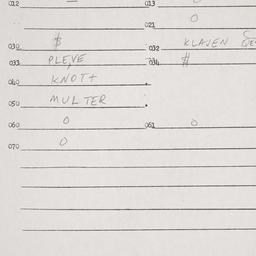 012 — 013 0
021 0
030 $ 032 KLAJEN
033 PLEVE 034 #
040 KNOTT
050 MULTER
060 0 061 0
070 0